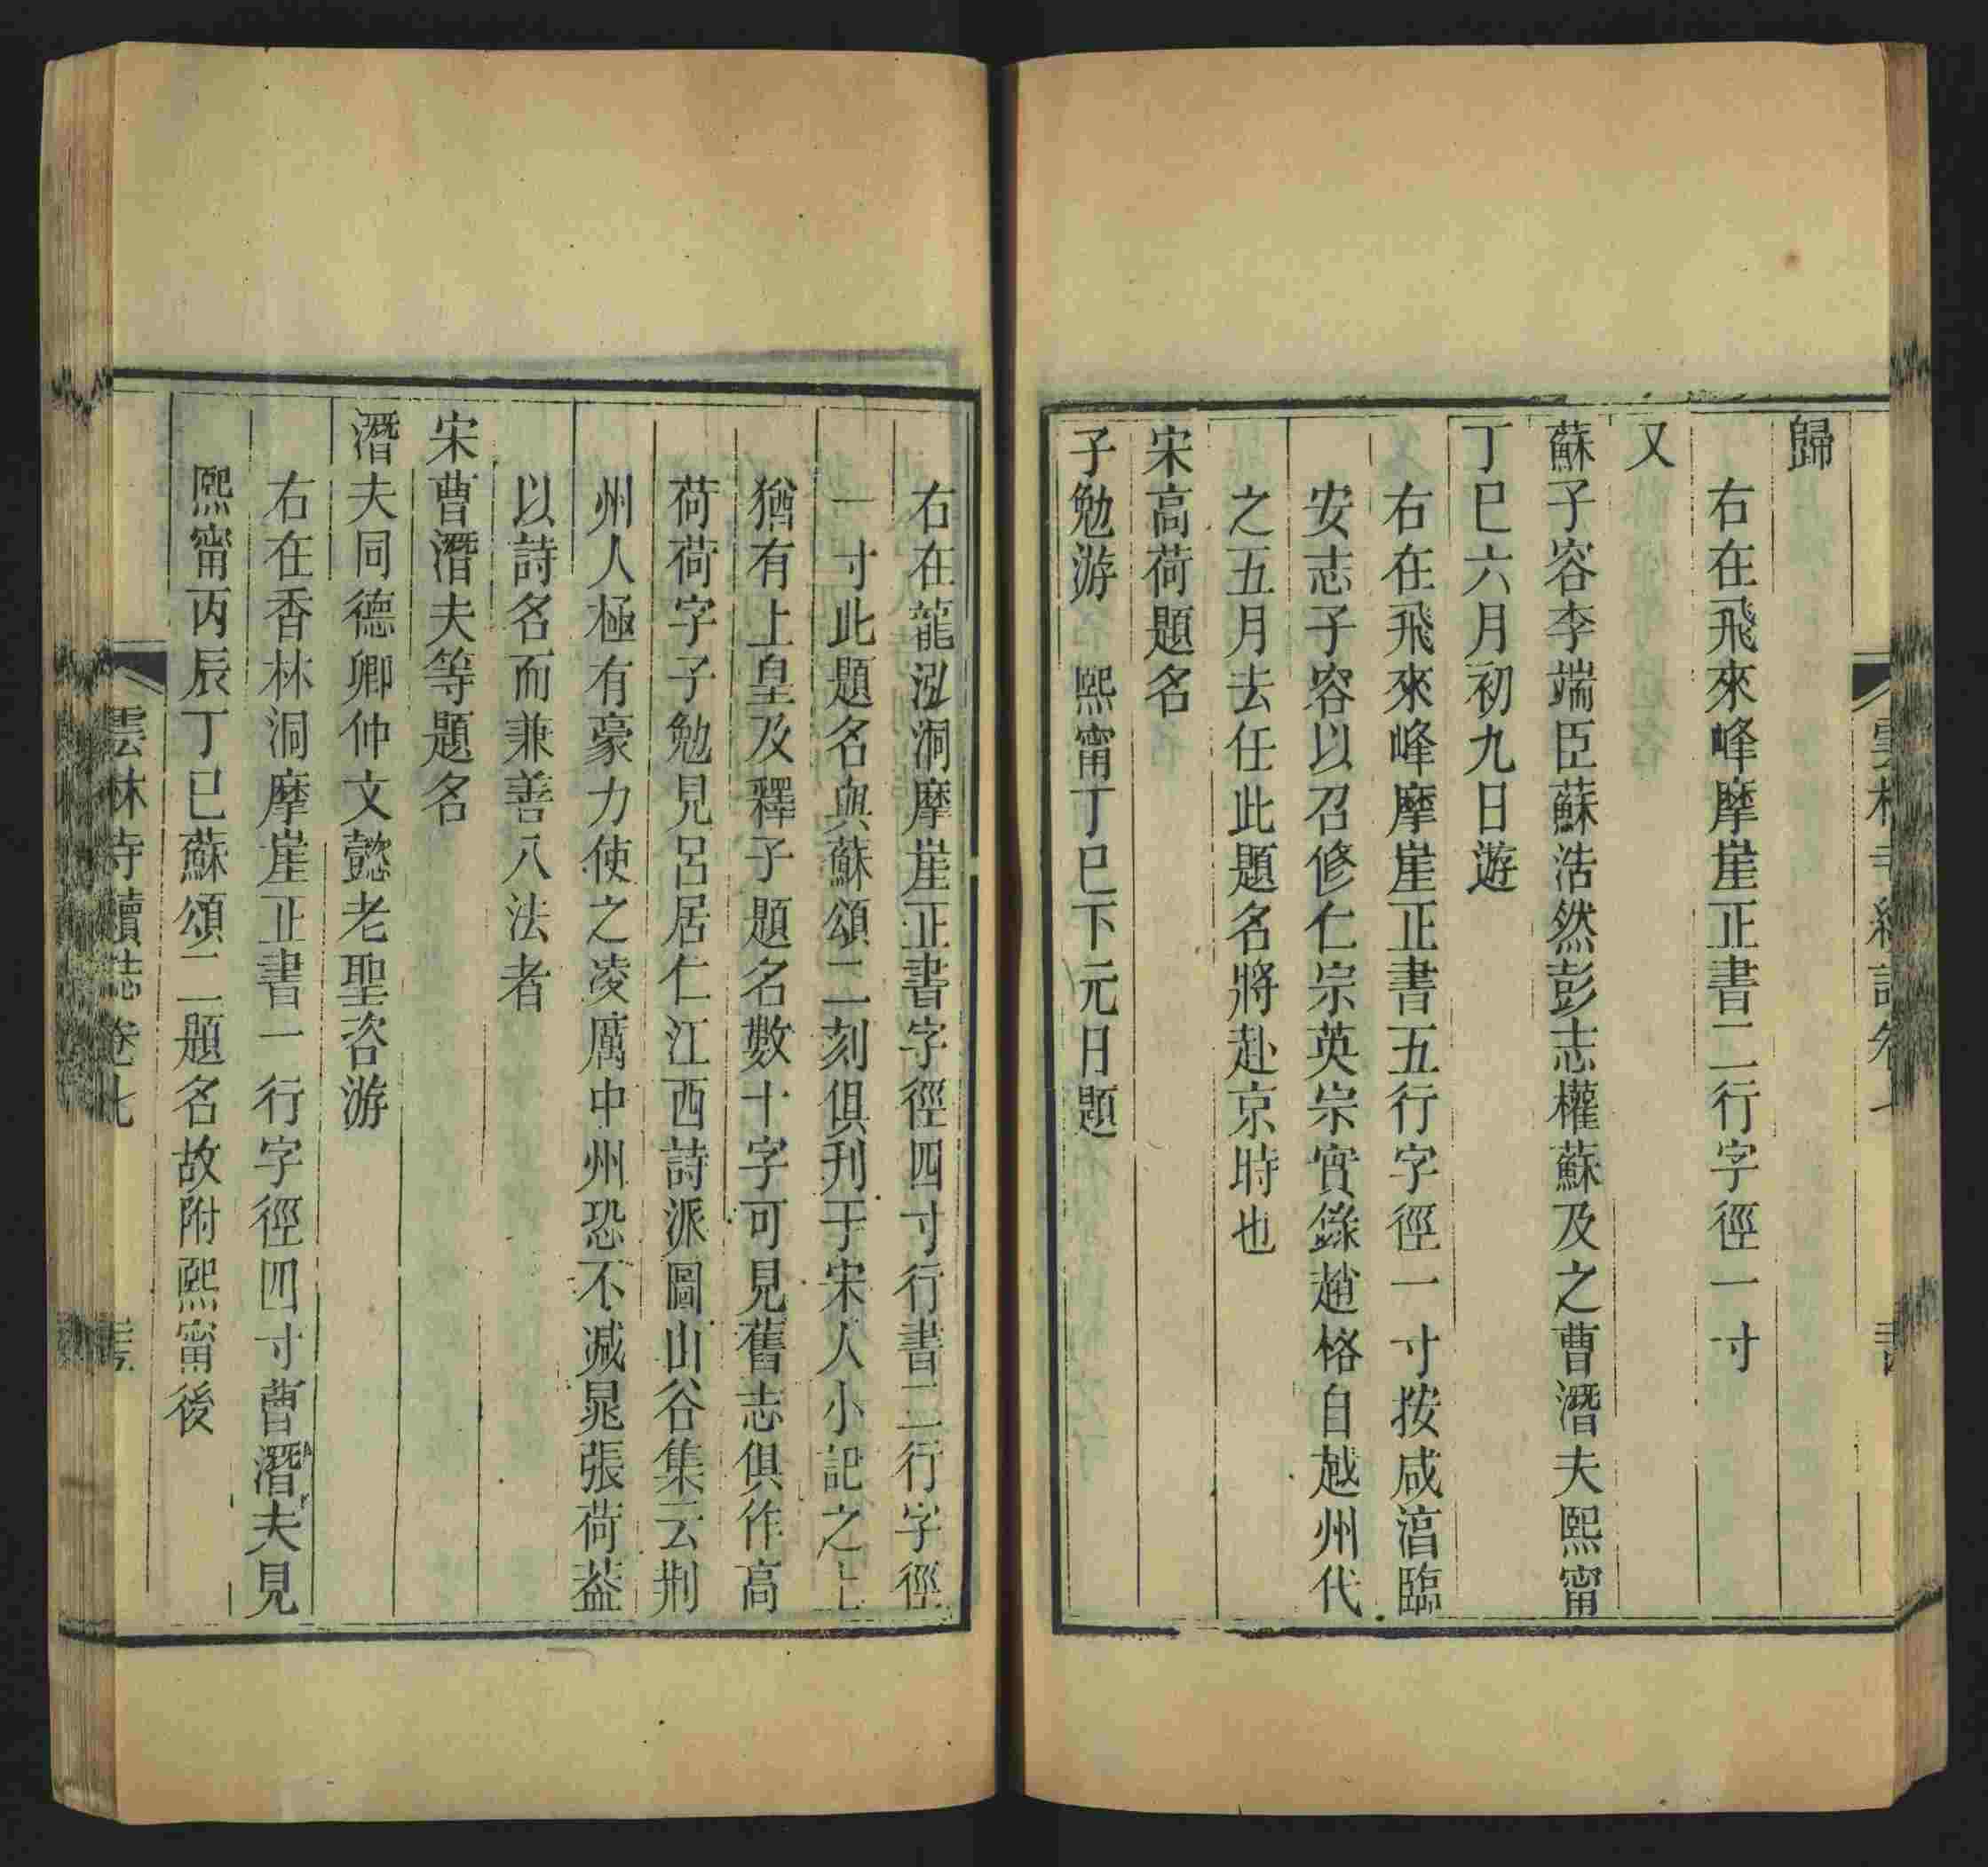 歸
右在飛來峰摩崖正書二行字徑一寸
又
蘇子容李端臣蘇浩然彭志權蘇及之曹潛夫熙甯
丁巳六月初九日遊
右在飛來峰摩崖正書五行字徑一寸按咸湻臨
安志子容以召修仁宗英宗實錄趙格自越州代
之五月去任此題名將赴京時也
宋高荷題名
子勉游 熙甯丁巳下元日題
右在龍泓洞摩崖正書字徑四寸行書二行字徑
一寸此題名與蘇頌二刻俱刋于宋人小記之上
猶有上皇及釋子題名數十字可見舊志俱作高
荷荷字子勉見呂居仁江西詩派圖山谷集云荆
州人極有豪力使之凌厲中州恐不减晁張荷葢
以詩名而兼善八法者
宋曹潛夫等題名
潛夫同德卿仲文懿老聖咨游
右在香林洞摩崖正書一行字徑四寸曹潛夫見
熙甯丙辰丁巳蘇頌二題名故附熙甯後
雲林寺續誌卷七